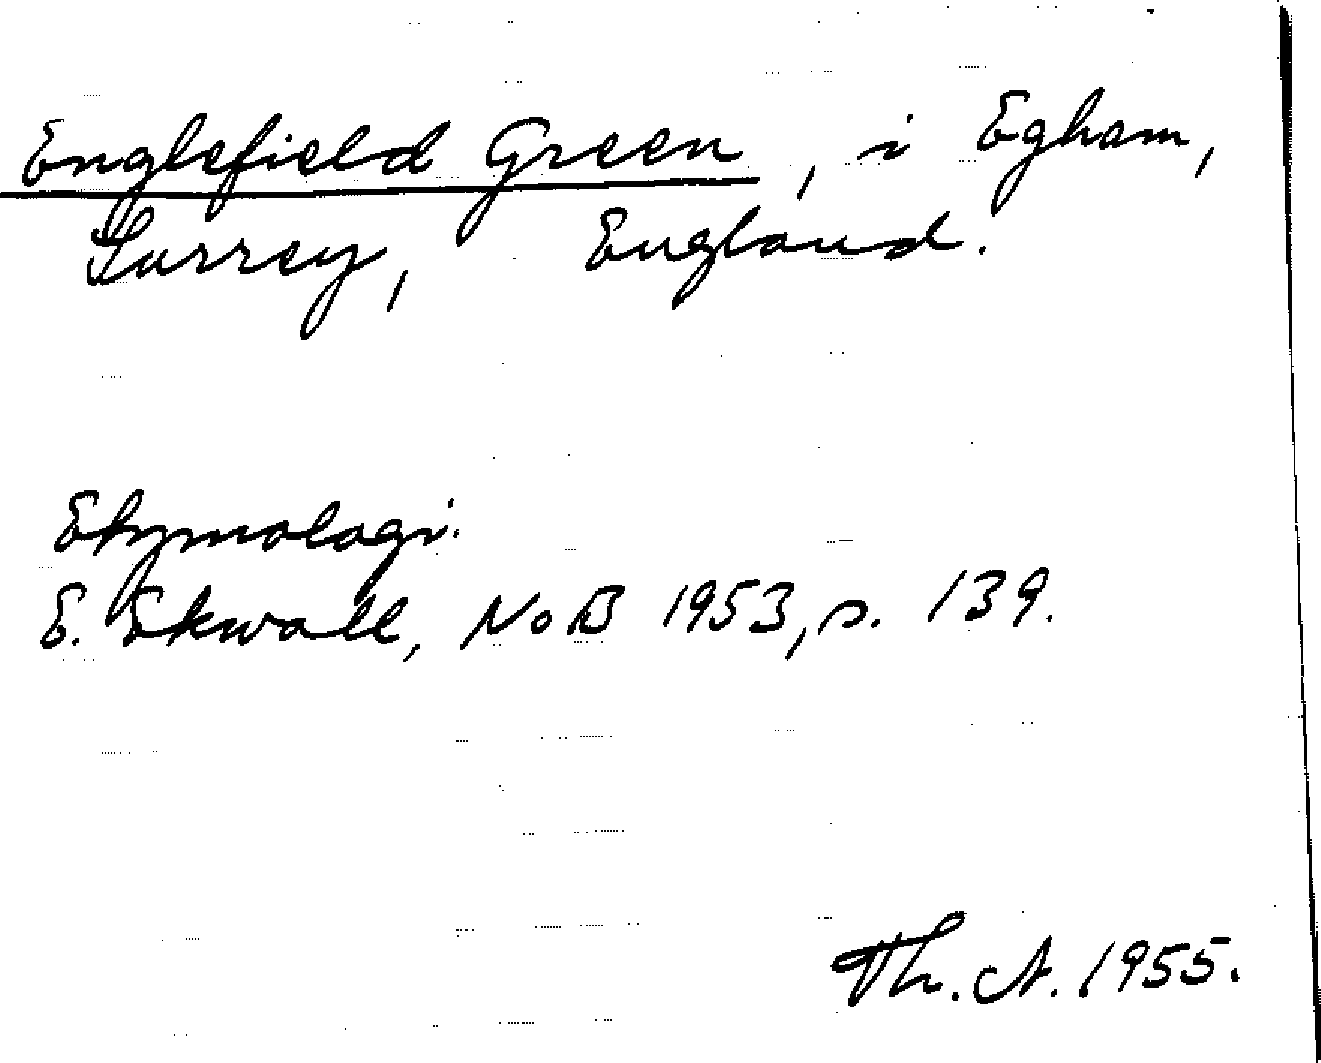 Englefield Green, i Egham,
Surrey, England.
Etymologi.
E. Ekwall, NoB 1953, s. 139.
Th. A. 1955.